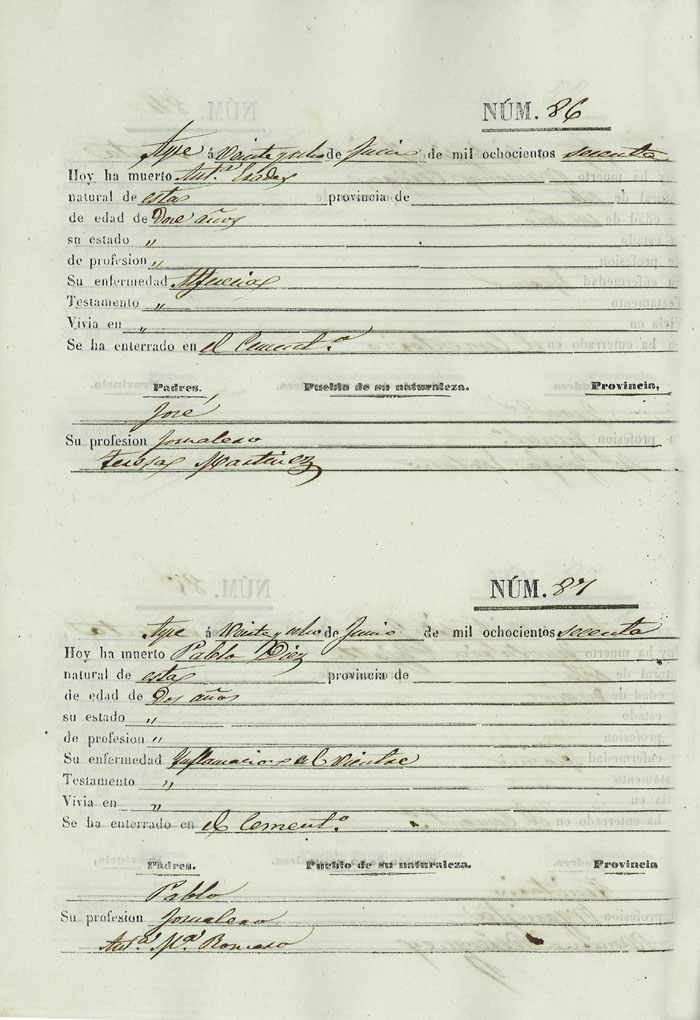 NÚM. 86
Aspe á Veinte y ocho de Junio de mil ochocientos sesenta
Hoy ha muerto Antª
natural de esta provincia de
de edad de Doce años
su estado "
de profesion "
Su enfermedad Alferecia
Testamento "
Vivia en "
Se ha enterrado en el Cementº
Padres. Pueblo de su naturaleza. Provincia,
José
Su profesion Jornalero
Teresa Martinez
NÚM. 87
Aspe á Veinte y ocho de Junio de mil ochocientos sesenta
Hoy ha muerto Pablo Diez
natural de esta provincia de
de edad de Dos años
su estado "
de profesion "
Su enfermedad Inflamacion al vientre
Testamento "
Vivia en "
Se ha enterrado en el Cementº
Padres. Pueblo de su naturaleza. Provincia
Pablo
Su profesion Jornalero
Antª Mª Romero